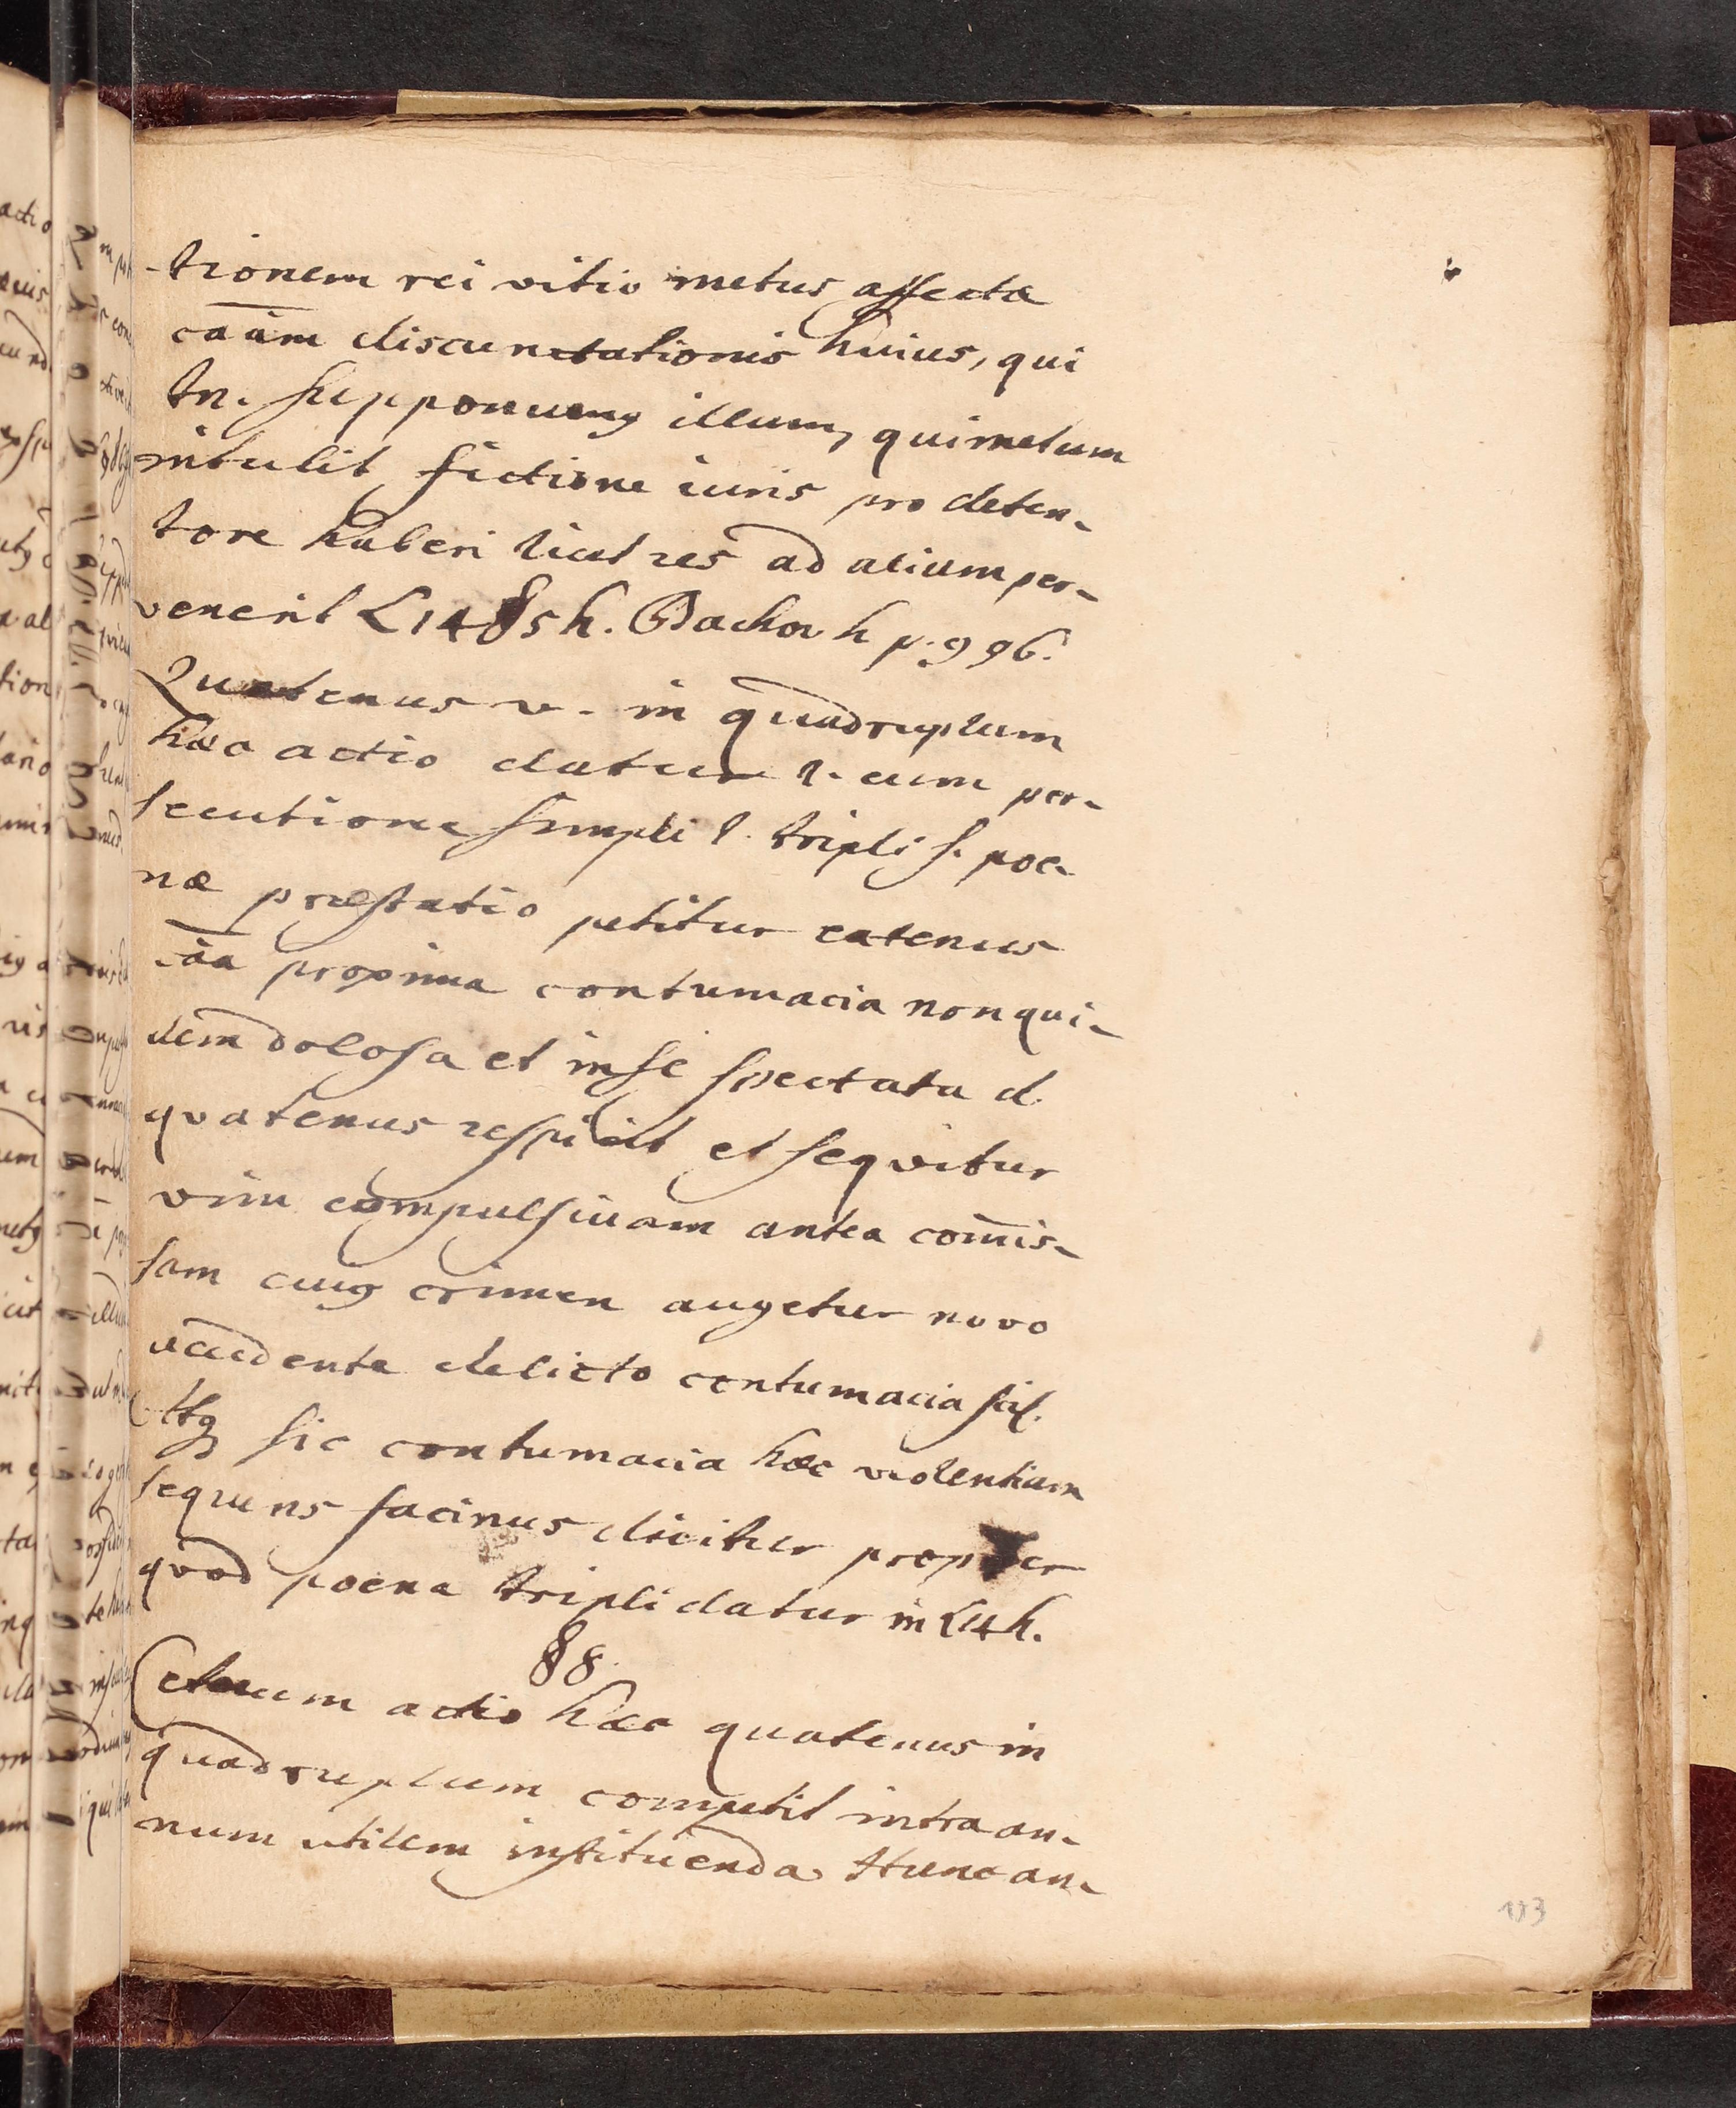 -tionem rei vitio metus affectæ
caām discunctationis huius, qui
tn. supponimus illum, qui metum
intulit fictione iuris pro deten-
tore haberi licet res ad alium per-
venerit L 14 § 5 h. Bachov h p. 996.
Quatenus v. in quadruplum
hæc actio datur s. cum per-
secutione simpli s. tripli s. poe-
næ præstatio petitur eatenus
cāa proxima contumacia non qui-
dem dolosa et in se spectata d.
quatenus respicit et sequitur
vim compulsivam antea com̄is-
sam cuiq crimen augetur novo
accedente delicto contumacia scil.
Atq sic contumacia hæc violentiam
sequens facinus dicitur propter
quod poena tripli datur in L 14 h.
§ 8.
Ceterum actio hæc quatenus in
quadruplum competit intra an-
num utilem instituenda Hunc an-
113